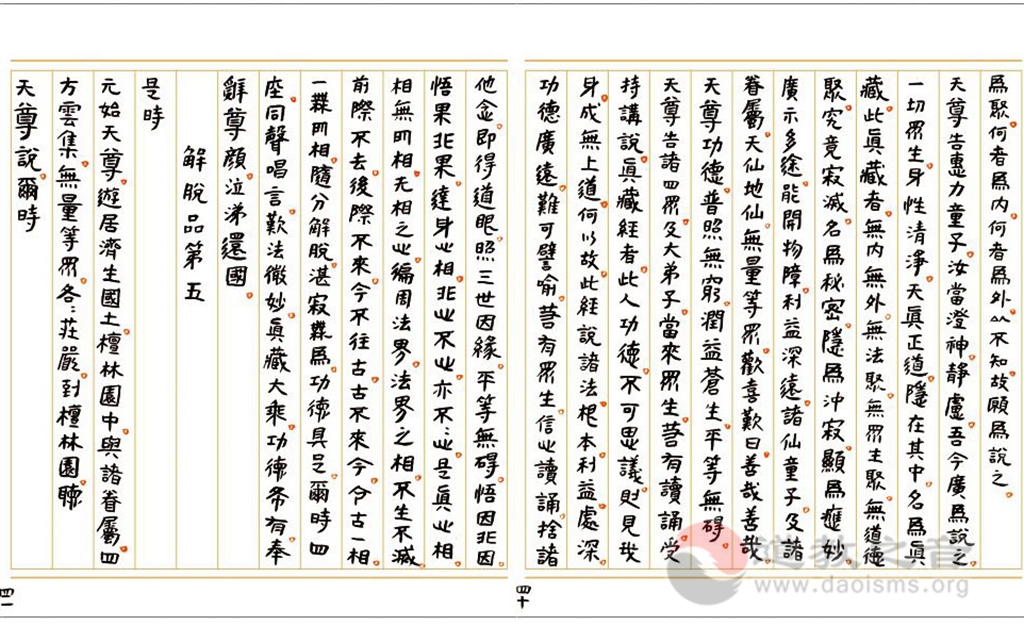 爲聚何者爲内何者爲外以不知故願爲說之
天尊告惠力童子汝當澄神靜慮吾今廣爲說之
一切眾生身性清淨天眞正道隱在其中名爲眞
藏此眞藏者無内無外無法聚無眾生聚無道德
聚究竟寂滅名爲秘密隱爲沖寂顯爲應妙
廣示多途能開物障利益深遠諸仙童子及諸
眷屬天仙地仙無量等眾歡喜歎曰善哉善哉
天尊功德普照無窮潤益蒼生平等無碍
天尊告諸四眾及大弟子當來眾生若有讀誦受
持講說眞藏經者此人功德不可思議則見我
身成無上道何以故此經說諸法根本利益處深
功德廣遠難可譬喻若有眾生信心讀誦捨諸
四十
他念即得道眼照三世因緣平等無碍悟因非因
悟果非果達身心相非心不心亦不:心是眞心相
相無所相无相之心徧周法界法界之相不生不滅
前際不去後際不來今不往古古不來今今古一相
一無所相隨分解脫湛寂無爲功德具足爾時四
座同聲唱言歎法微妙眞藏大乘功德希有奉
辭尊顔泣涕還國
解脫品第五
是時
元始天尊遊居濟生國土檀林園中與諸眷屬四
方雲集無量等眾各:莊嚴到檀林園聽
天尊說爾時
四一
道教之音
www.daoisms.org